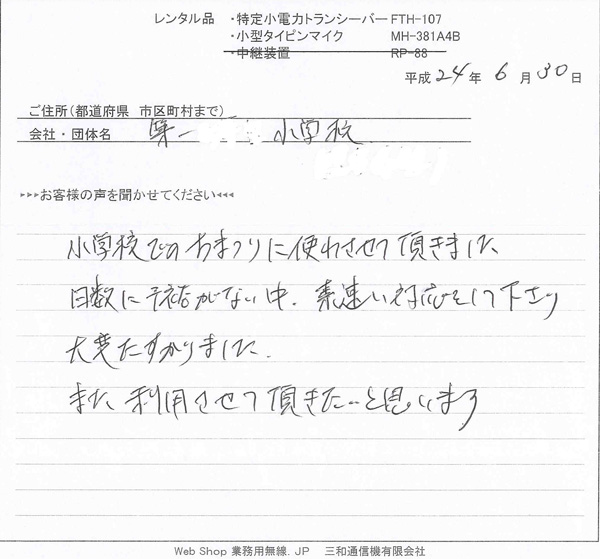 レンタル品 ・特定小電力トランシーバー FTH-107
・小型タイピンマイク MH-381A4B
・中継装置 RP-88
平成 24 年 6 月 30 日
ご住所(都道府県 市区町村まで)
会社・団体名 第一 小学校
▸▸▸お客様の声を聞かせてください◂◂◂
小学校でのおまつりに使わさせて頂きました
日数に余裕がない中、素速い対応をして下さり
大変たすかりました.
また、利用させて頂きたいと思います
Web Shop 業務用無線.JP 三和通信機有限会社